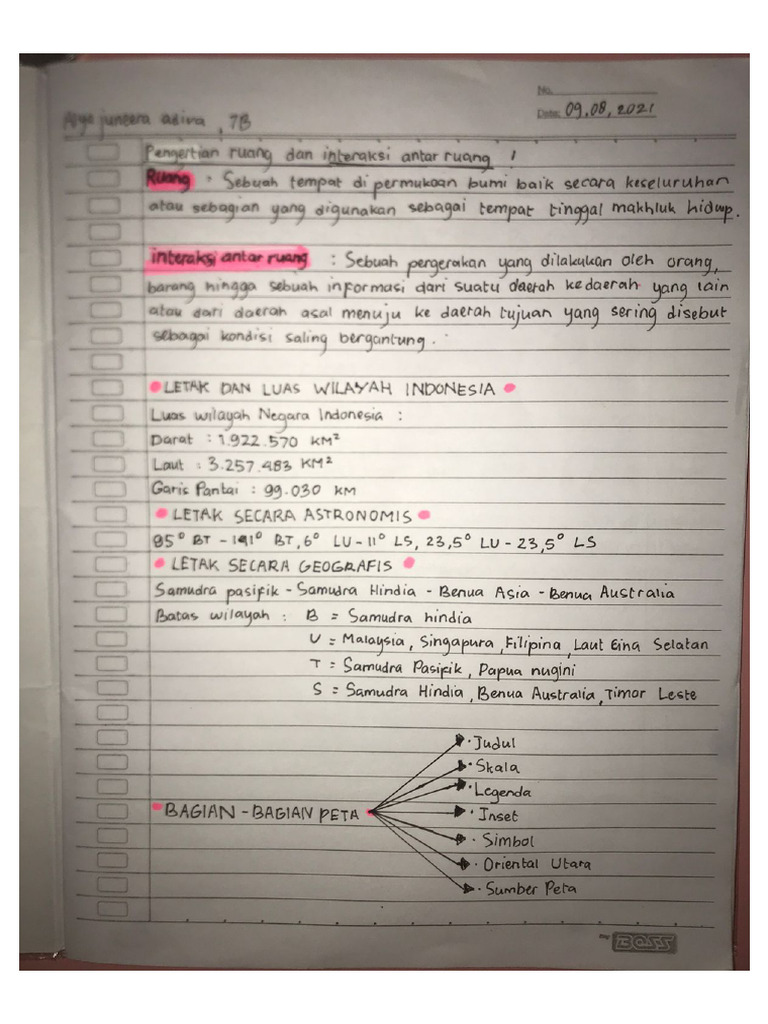 No.
Date: 09, 08, 2021
Arya juntera adiva, 7B
Pengertian ruang dan interaksi antar ruang !
Ruang : Sebuah tempat di permukaan bumi baik secara keseluruhan
atau sebagian yang digunakan sebagai tempat tinggal makhluk hidup.
interaksi antar ruang : Sebuah pergerakan yang dilakukan oleh orang,
barang hingga sebuah informasi dari suatu daerah kedaerah yang lain
atau dari daerah asal menuju ke daerah tujuan yang sering disebut
sebagai kondisi saling bergantung.
• LETAK DAN LUAS WILAYAH INDONESIA •
Luas wilayah Negara Indonesia :
Darat : 1.922.570 KM²
Laut : 3.257.483 KM²
Garis Pantai : 99.030 KM
• LETAK SECARA ASTRONOMIS •
95° BT - 141° BT, 6° LU - 11° LS, 23,5° LU - 23,5° LS
• LETAK SECARA GEOGRAFIS •
Samudra pasifik - Samudra Hindia - Benua Asia - Benua Australia
Batas wilayah : B = Samudra hindia
U = Malaysia, Singapura, Filipina, Laut Cina Selatan
T = Samudra Pasifik, Papua nugini
S = Samudra Hindia, Benua Australia, Timor Leste
• Judul
• Skala
• Legenda
• BAGIAN - BAGIAN PETA • • Inset
• Simbol
• Oriental Utara
• Sumber Peta
my BOSS